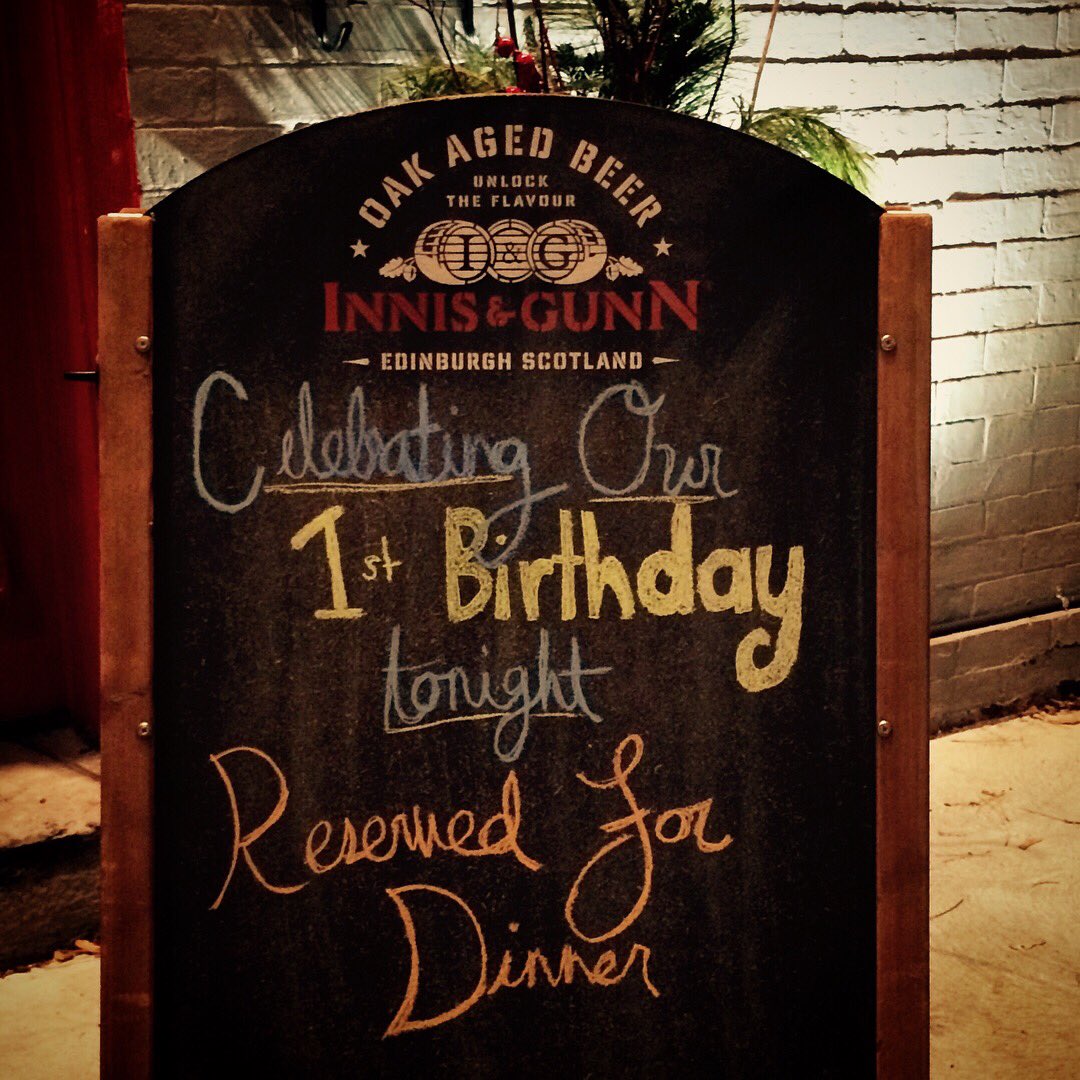 OAK AGED BEER
UNLOCK
THE FLAVOUR
I&G
INNIS & GUNN
EDINBURGH SCOTLAND
Celebrating Our
1st Birthday
tonight
Reserved For
Dinner